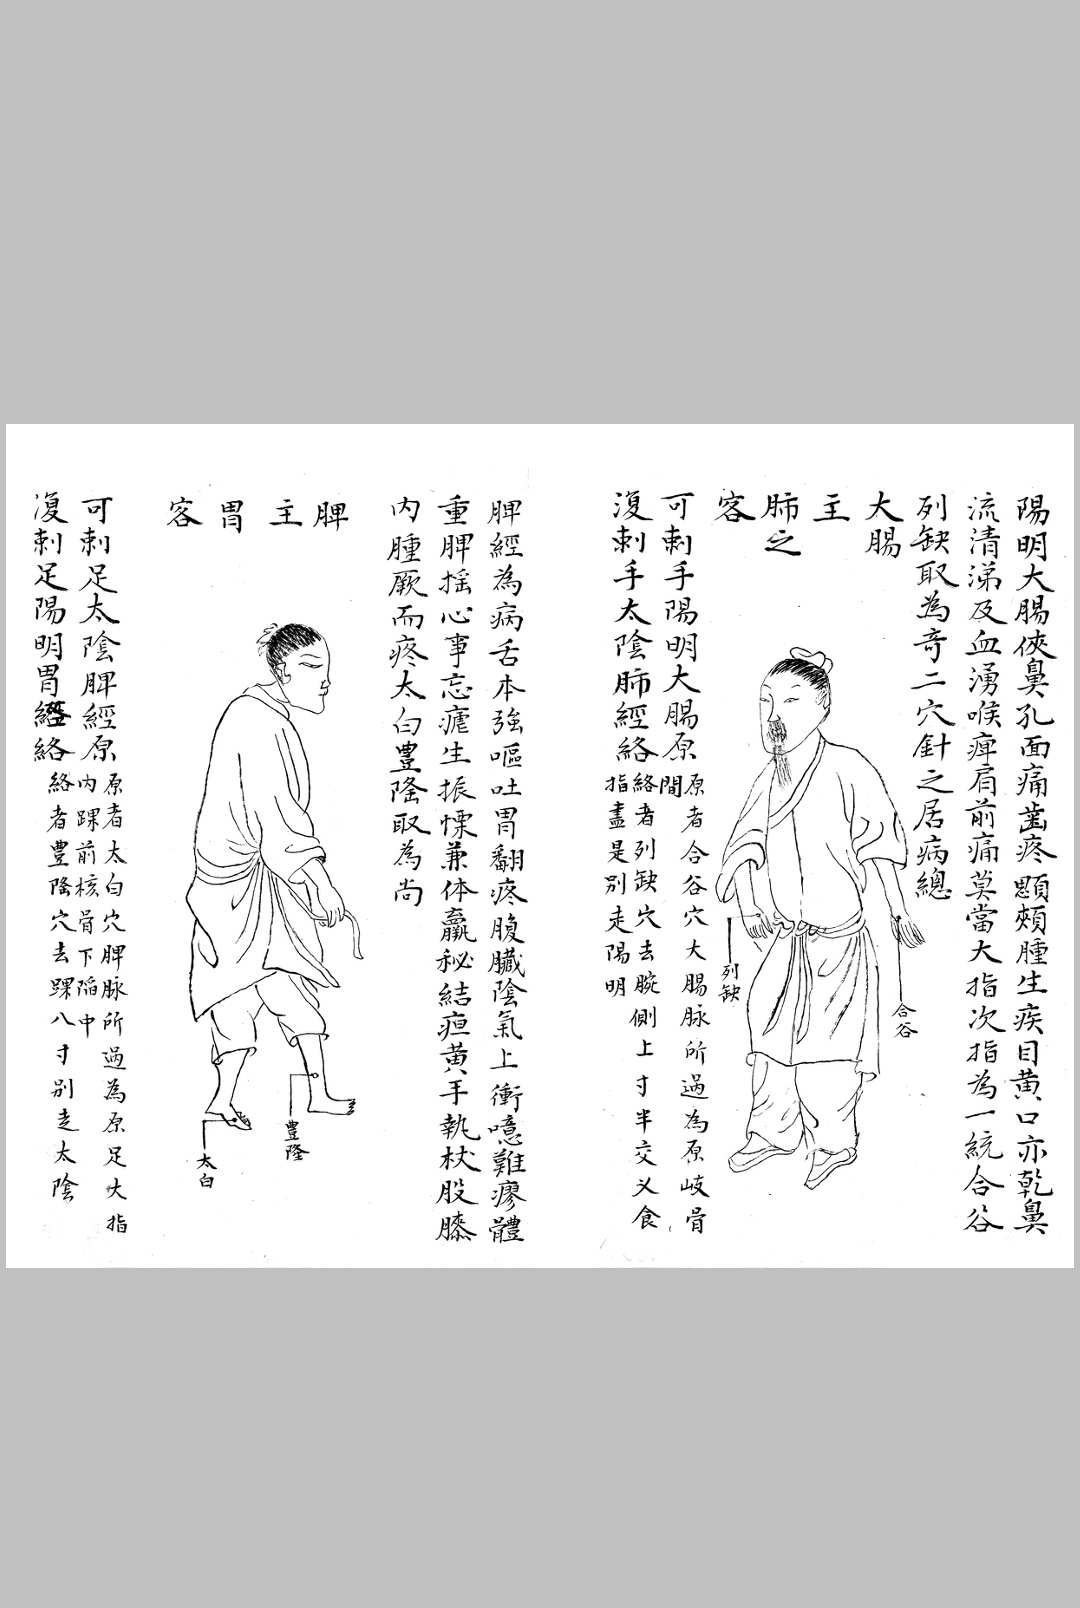 陽明大腸俠鼻孔面痛齒疼顋頰腫生疾目黄口亦乾鼻
流清涕及血湧喉痺肩前痛莫當大指次指為一統合谷
列缺取為奇二穴針之居病總
大腸
主
肺之
客
可刺手陽明大腸原
原者合谷穴大腸脉所過為原岐骨
間
復刺手太陰肺經絡
絡者列缺穴去腕側上寸半交义食
指盡是别走陽明
列缺
合谷
脾經為病舌本強嘔吐胃翻疼腹臟陰氣上衝噫難瘳體
重脾揺心事忘瘧生振慄兼体羸秘結疸黄手執杖股膝
内腫厥而疼太白豊隆取為尚
脾
主
胃
客
豊隆
太白
可刺足太陰脾經原
原者太白穴脾脉所過為原足大指
内踝前核骨下陷中
復刺足陽明胃經絡
絡者豊隆穴去踝八寸别走太陰